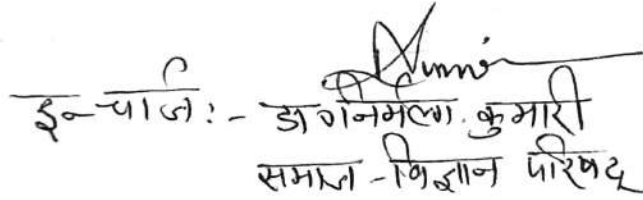 इन्चार्ज :- डा० निर्मला कुमारी
समाज - विज्ञान परिषद्